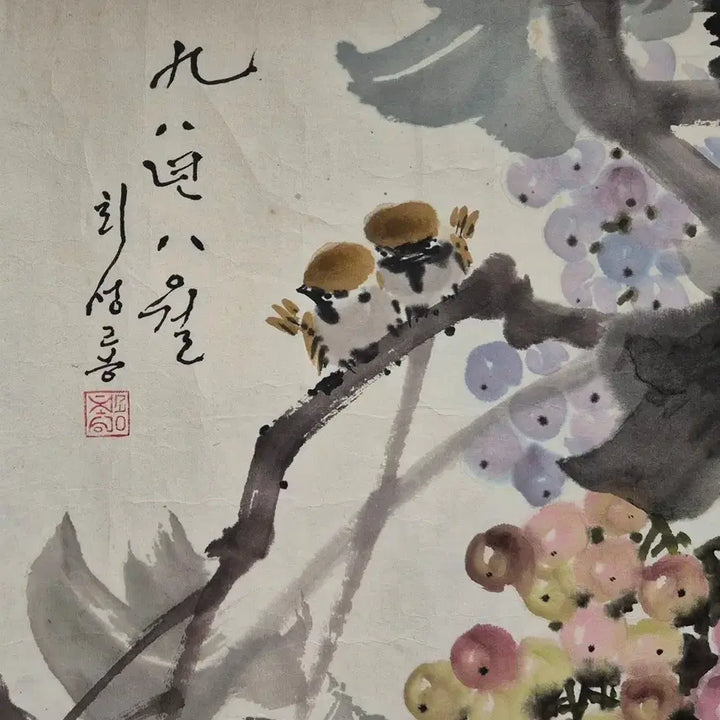 九八년八월
최성룡